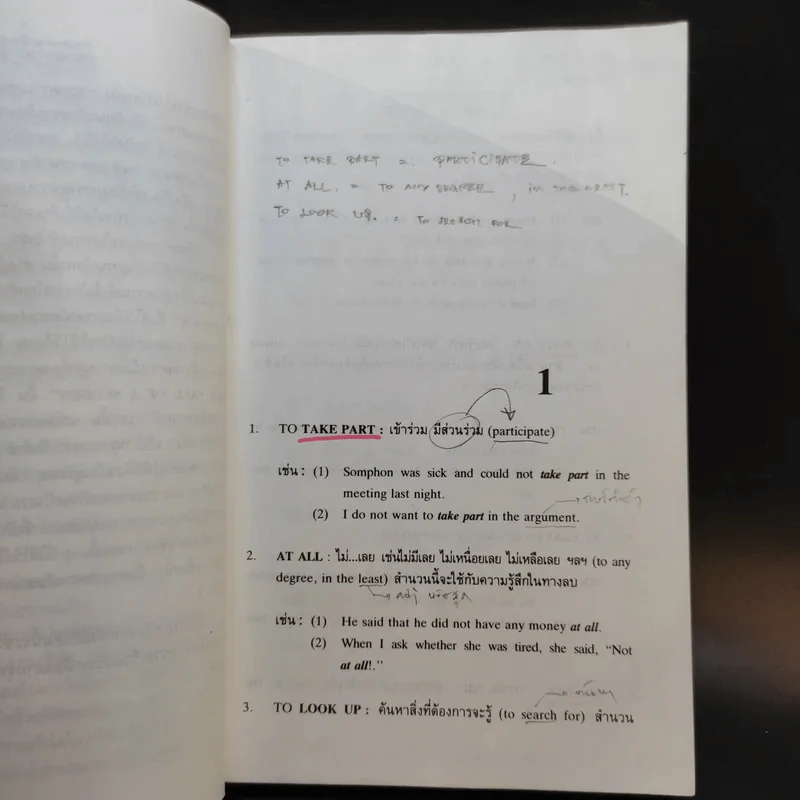 TO TAKE PART = PARTICIPATE.
AT ALL. = TO ANY DEGREE, IN THE LEAST.
TO LOOK UP. = TO SEARCH FOR
1
1. TO TAKE PART : เข้าร่วม มีส่วนร่วม (participate)
เช่น : (1) Somphon was sick and could not take part in the
meeting last night.
(2) I do not want to take part in the argument.
2. AT ALL : ไม่...เลย เช่นไม่มีเลย ไม่เหนื่อยเลย ไม่เหลือเลย ฯลฯ (to any
degree, in the least) สำนวนนี้จะใช้กับความรู้สึกในทางลบ
adj
เช่น : (1) He said that he did not have any money at all.
(2) When I ask whether she was tired, she said, “Not
at all!.”
3. TO LOOK UP : ค้นหาสิ่งที่ต้องการจะรู้ (to search for) สำนวน